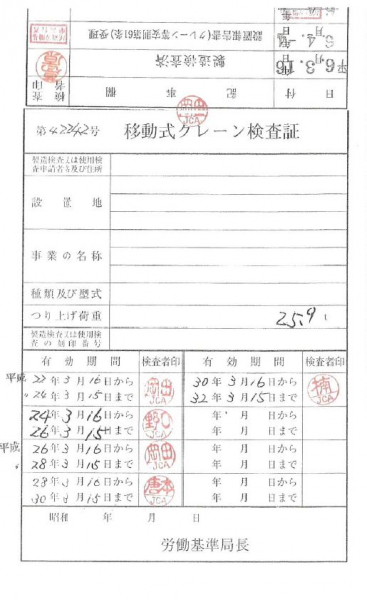 日 付
記 事 欄
検査者印
平 6.3.16
製造検査済
6.4.
設置報告書(クレーン等安則第61条)受理
岡田
JCA
第42242号 移動式クレーン検査証
製造検査又は使用検
査申請者名及び住所
設置地
事業の名称
種類及び型式
つり上げ荷重 25.9 t
製造検査又は使用検
査の刻印番号
有効期間 検査者印 有効期間 検査者印
平成 22年3月16日から 岡田 JCA 30年3月16日から 楠 JCA
〃 24年3月15日まで 32年3月15日まで
24年3月16日から 野口 JCA 年 月 日から
26年3月15日まで 年 月 日まで
平成 26年3月16日から 岡田 JCA 年 月 日から
〃 28年3月15日まで 年 月 日まで
28年3月16日から 唐本 JCA 年 月 日から
30年3月15日まで 年 月 日まで
昭和 年 月 日
労働基準局長